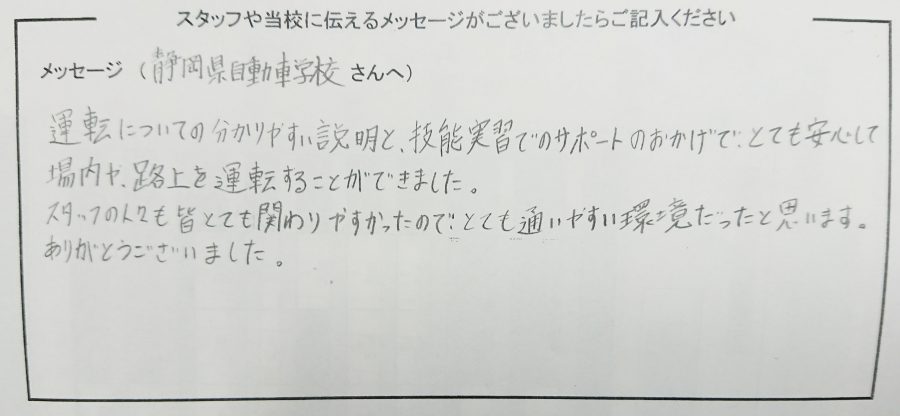 スタッフや当校に伝えるメッセージがございましたらご記入ください
メッセージ（静岡県自動車学校さんへ）
運転についての分かりやすい説明と、技能実習でのサポートのおかげで、とても安心して
場内や、路上を運転することができました。
スタッフの人々も皆とても関わりやすかったので、とても通いやすい環境だったと思います。
ありがとうございました。